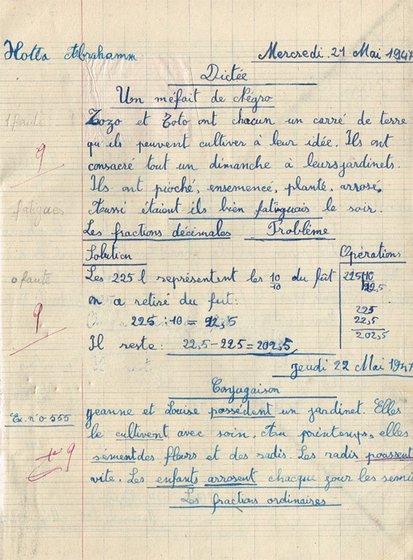 Holta Abrahamm
Mercredi 21 Mai 1947
Dictée
Un méfait de Négro
1 faute
Zozo et Zoto ont chacun un carré de terre
qu'ils peuvent cultiver à leur idée. Ils ont
9
consacré tout un dimanche à leurs jardinets.
Ils ont pioché, ensemence, planté, arrosé.
fatigués
Aussi étaient ils bien fatiguais le soir.
Les fractions décimales Problème
Solution
Opérations
0 faute
Les 225 l représentent les 10/10 du fût
225 10
22,5
on a retiré du fut:
225
9
225 : 10 = 22,5
22,5
202,5
Il reste: 22,5 - 225 = 202,5
Jeudi 22 Mai 1947
Conjugaison
Ex. n° 555
Jeanne et Louise possèdent un jardinet. Elles
le cultivent avec soin. Au printemps, elles
9
sement des fleurs et des radis. Les radis poussent
vite. Les enfants arrosent chaque jour les semis
Les fractions ordinaires